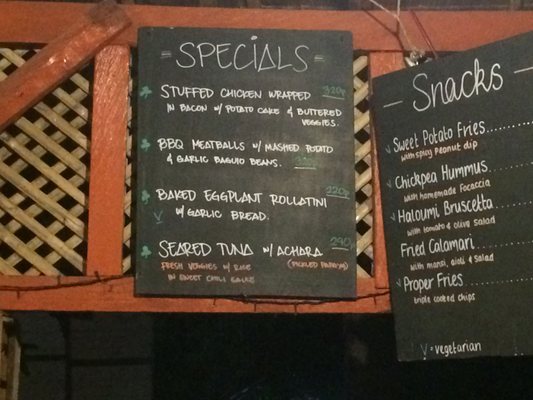 = SPECIALS =
STUFFED CHICKEN WRAPPED 320p
IN BACON W/ POTATO CAKE & BUTTERED
VEGGIES.
BBQ MEATBALLS W/ MASHED POTATO
& GARLIC BAGUIO BEANS.
BAKED EGGPLANT ROLLATINI 220p
V W/ GARLIC BREAD.
SEARED TUNA W/ ACHARA 290p
FRESH VEGGIES W/ RICE (PICKLED PAPAYAS)
IN SWEET CHILI SAUCE
- Snacks -
V Sweet Potato Fries..........
with spicy Peanut dip
V Chickpea Hummus..........
with homemade Focaccia
V Haloumi Bruscetta..........
with tomato & olive Salad
Fried Calamari..........
with aioli & Salad
V Proper Fries..........
triple cooked chips
V = vegetarian